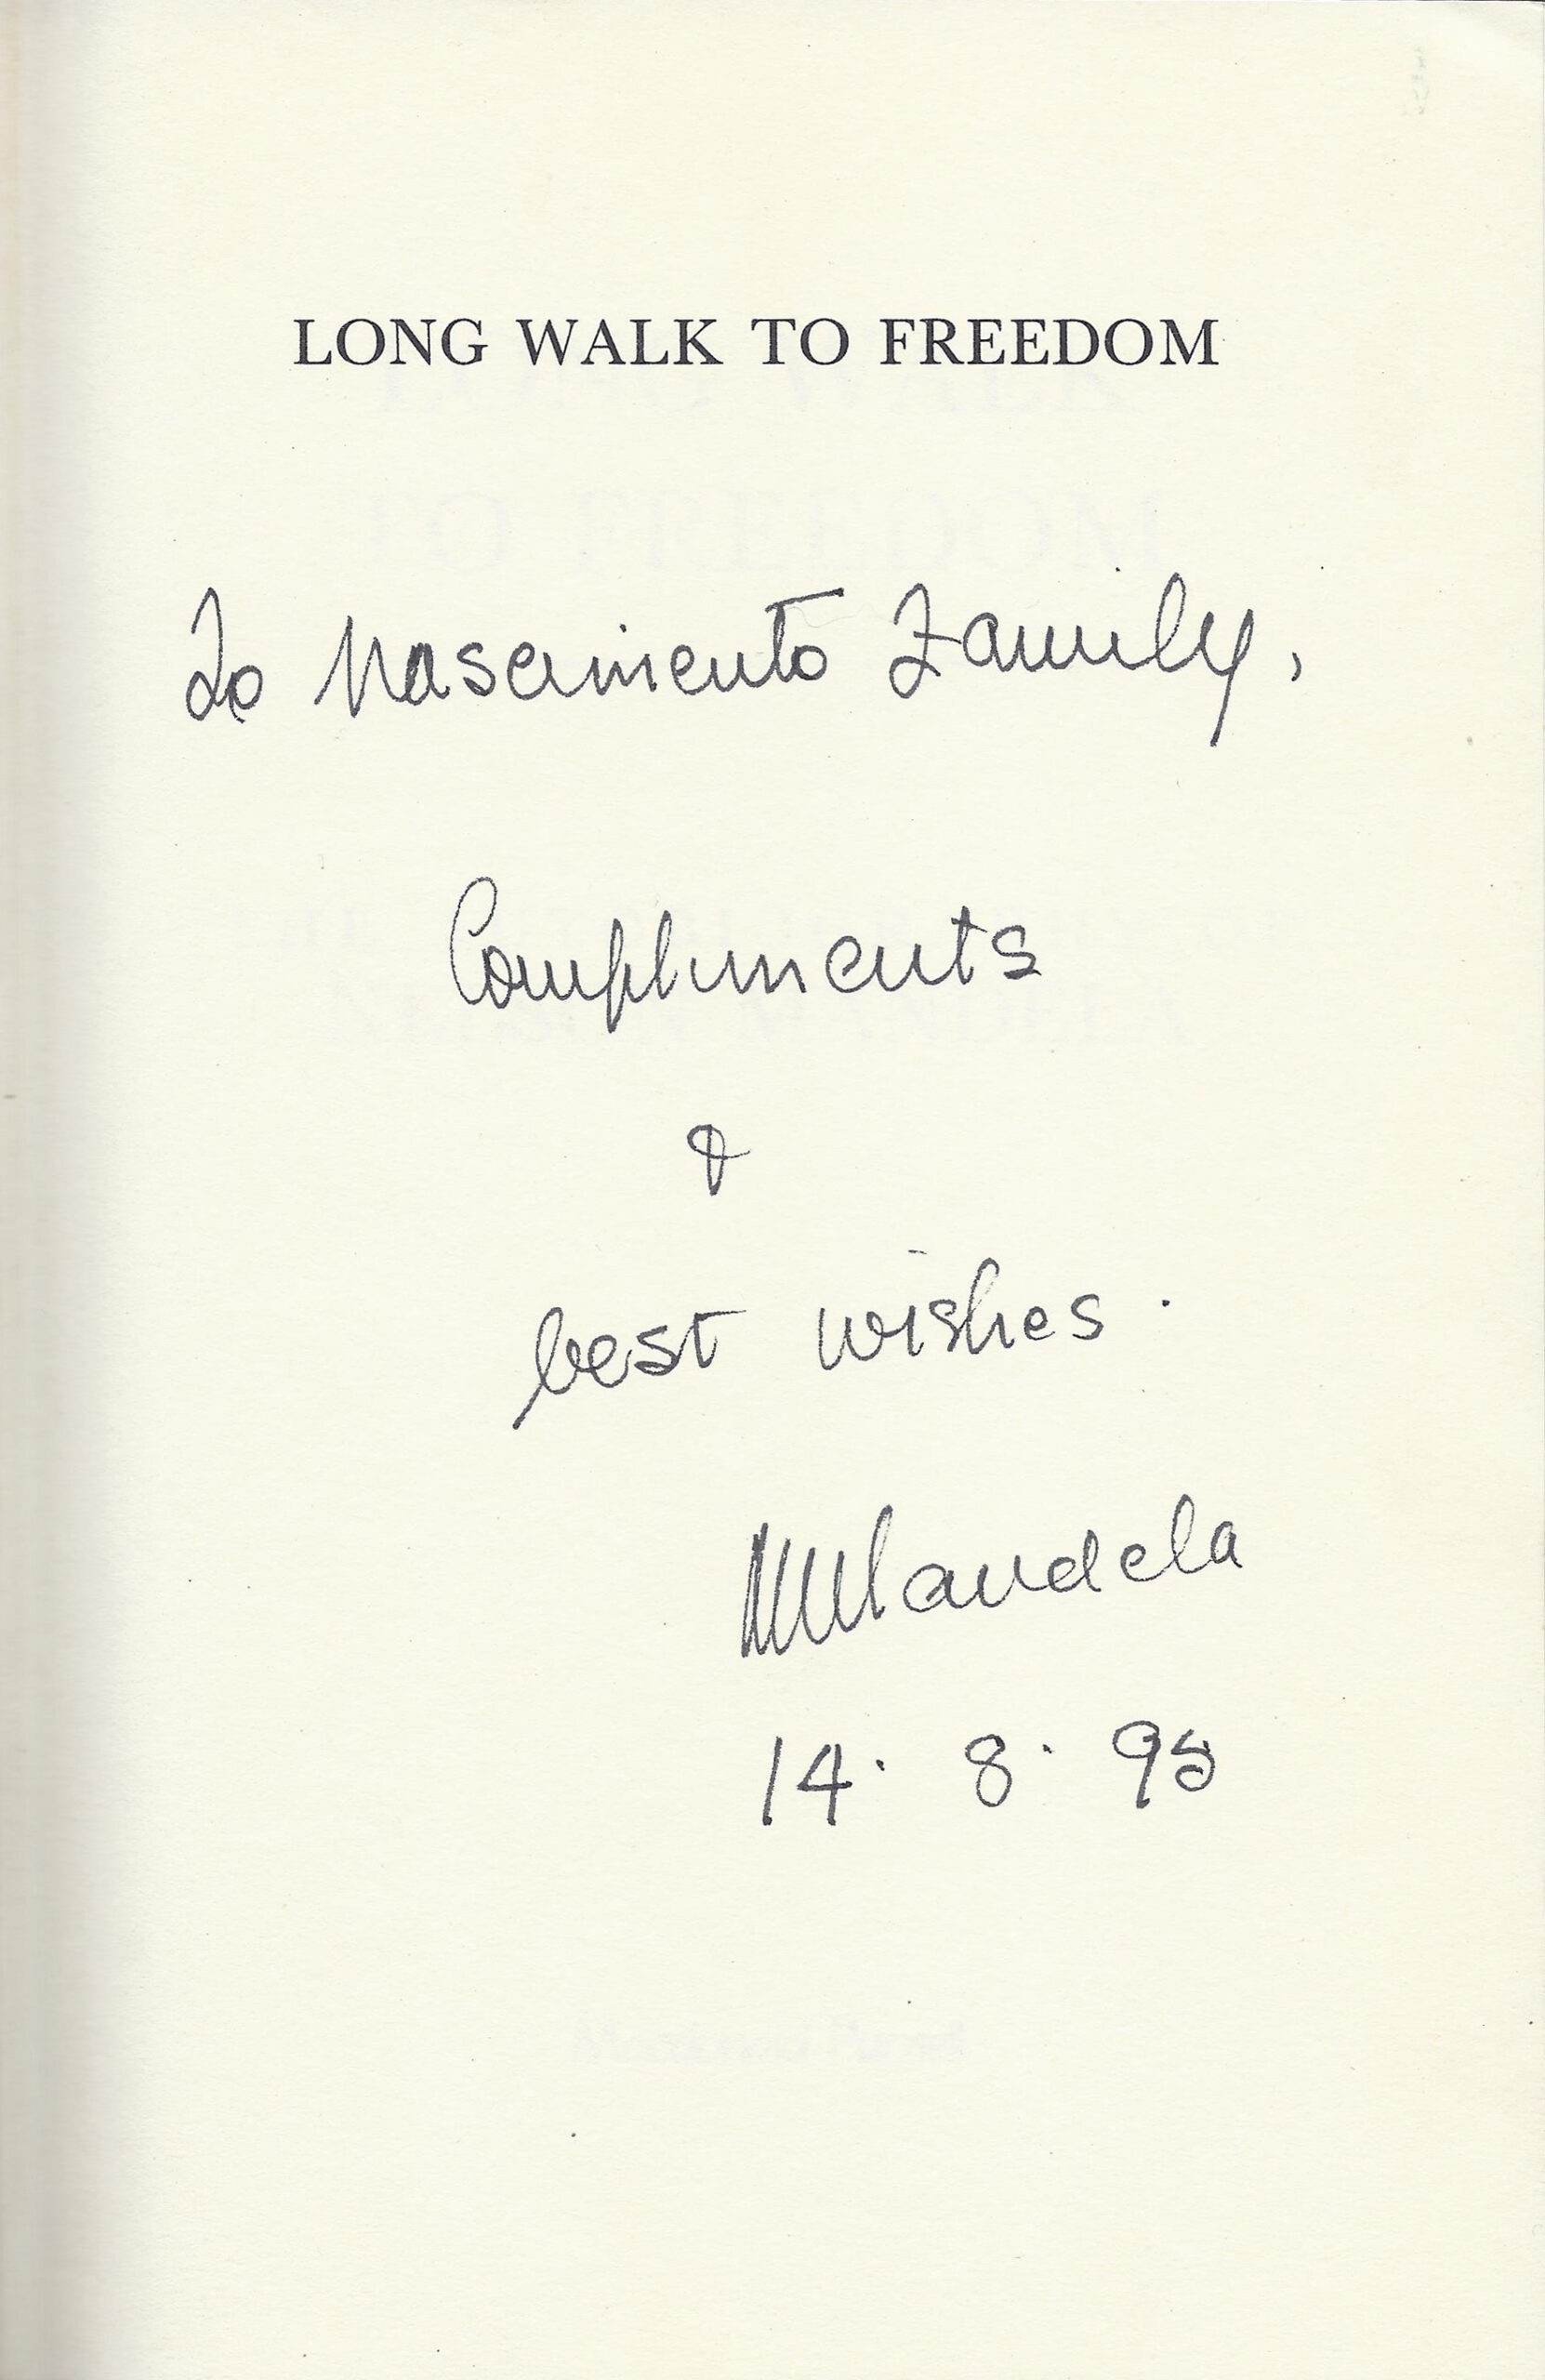 LONG WALK TO FREEDOM
To Nascimento Family,
Compliments
&
best wishes.
NMandela
14. 8. 95